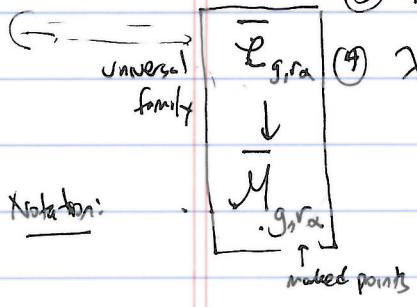 universal
family
$\overline{\mathcal{C}}_{g,r_\alpha}$
④ λ
↓
Notation:
$\overline{\mathcal{M}}_{g,r_\alpha}$
↑
marked points